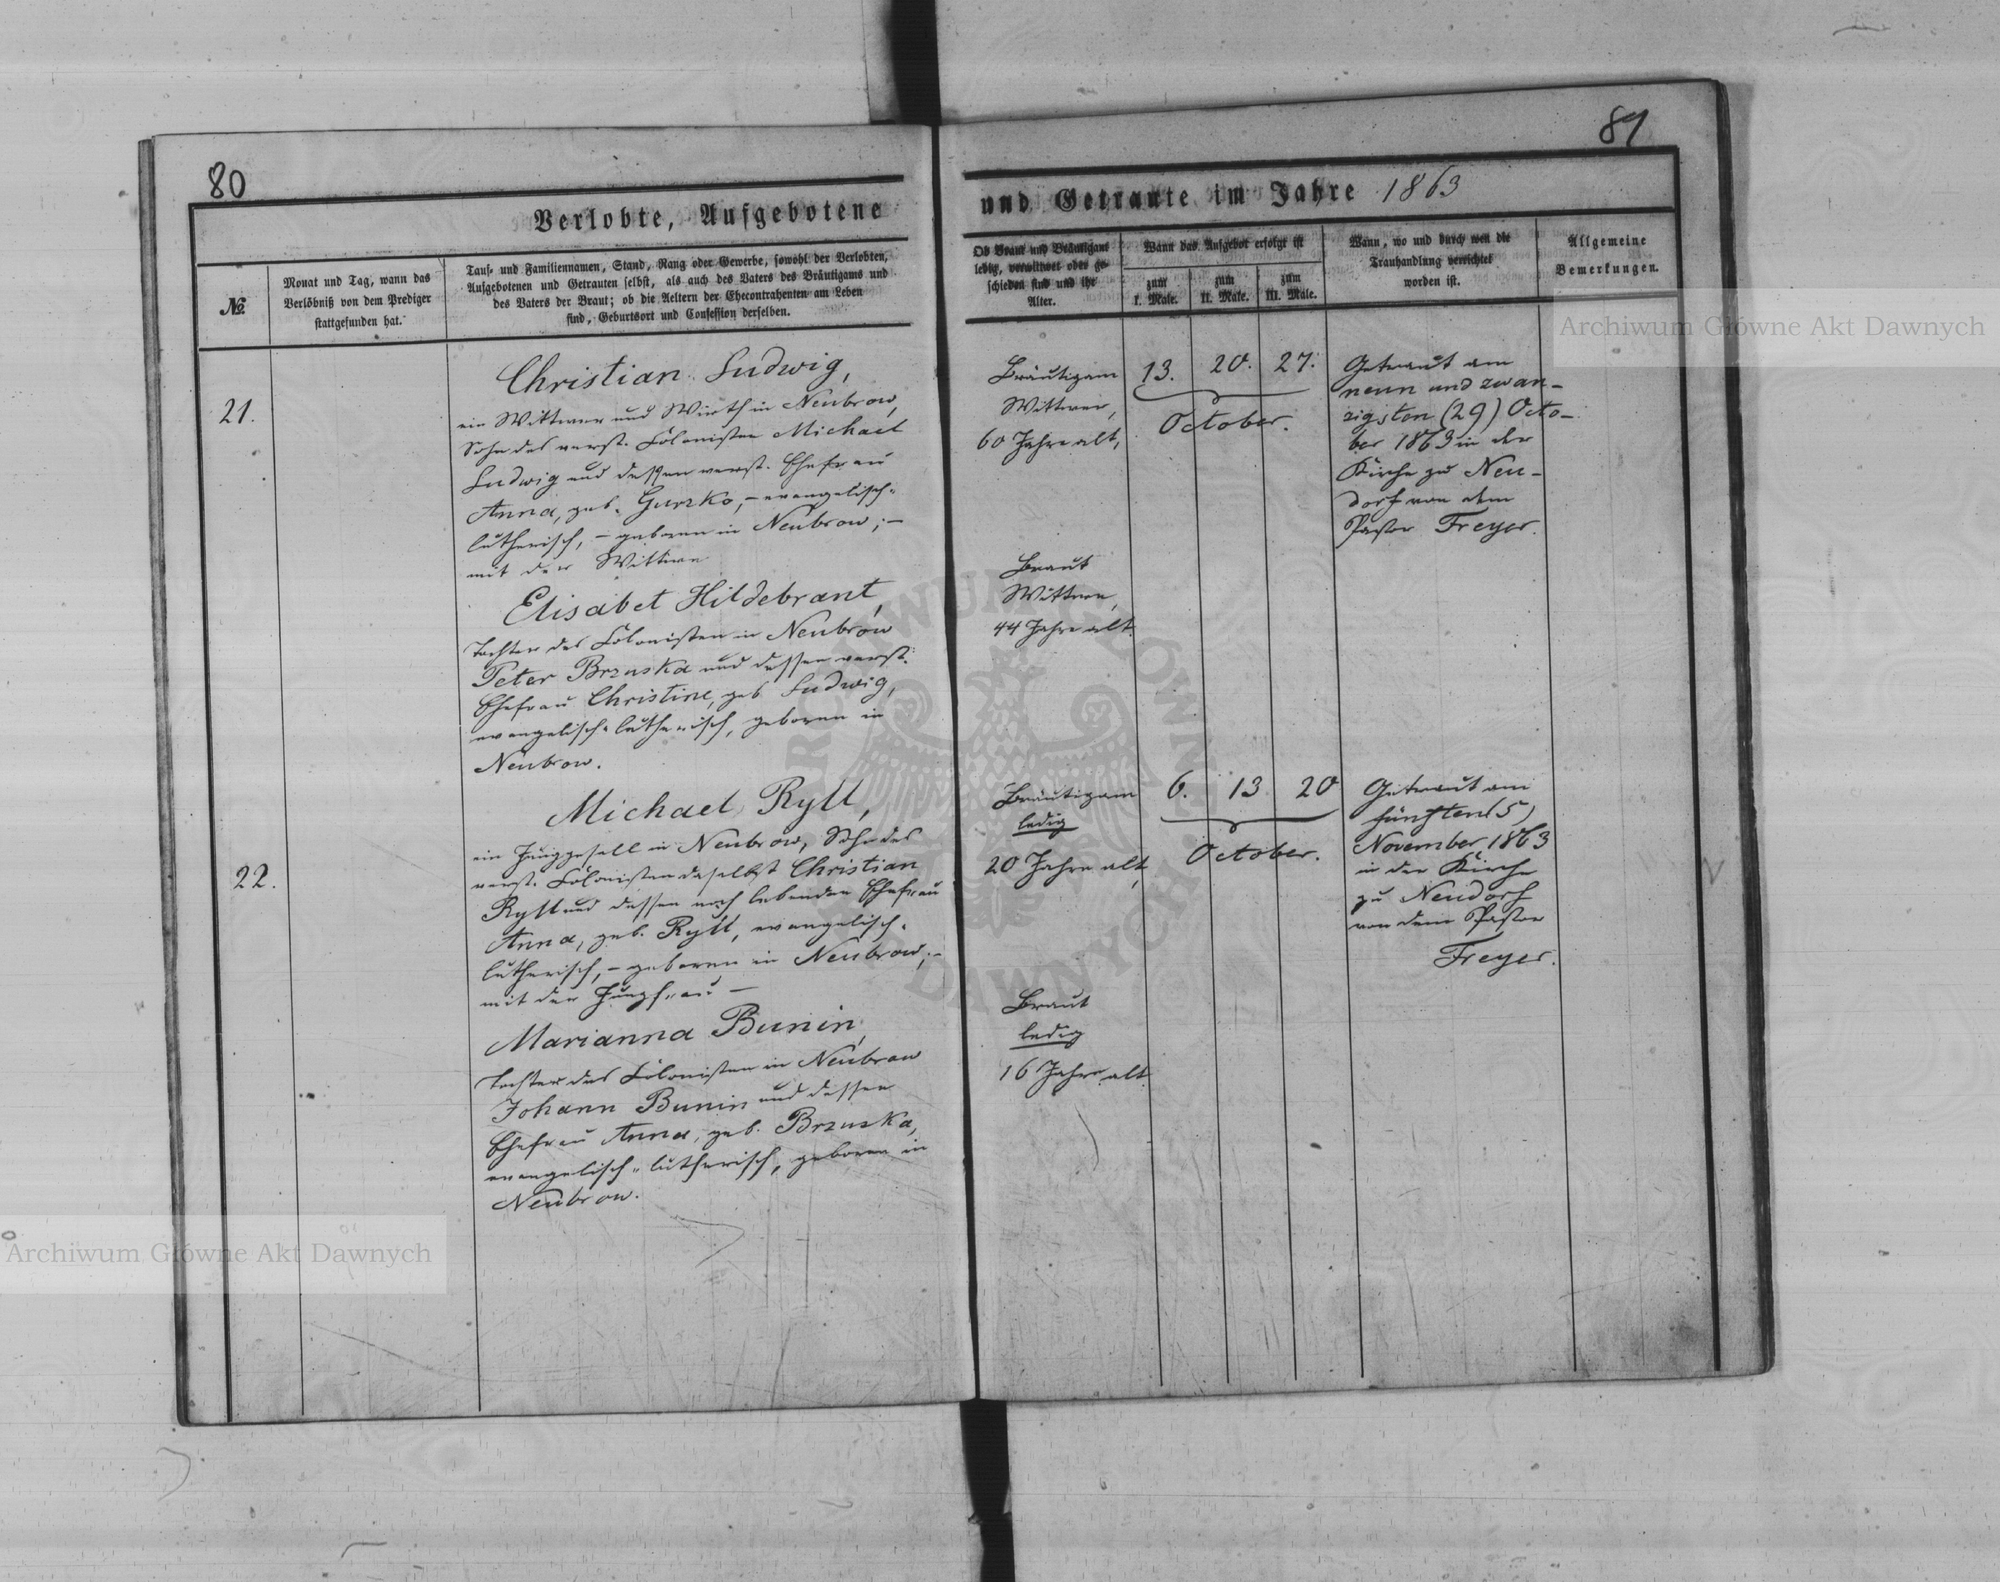 80
Verlobte, Aufgebotene
№
Monat und Tag, wann das
Verlöbniß von dem Prediger
stattgefunden hat.
Tauf- und Familiennamen, Stand, Rang oder Gewerbe, sowohl der Verlobten,
Aufgebotenen und Getrauten selbst, als auch des Vaters des Bräutigams und
des Vaters der Braut; ob die Aeltern der Ehecontrahenten am Leben
sind, Geburtsort und Confession derselben.
21.
Christian Ludwig,
ein Wittwer und Wirth in Neubrow,
Sohn des verst. Colonisten Michael
Ludwig und dessen verst. Ehefrau
Anna, geb. Gurzko, – evangelisch-
lutherisch, – geboren in Neubrow; –
mit der Wittwe
Elisabet Hildebrant,
Tochter des Colonisten in Neubrow
Peter Brzuska und dessen verst.
Ehefrau Christine, geb. Ludwig,
evangelisch-lutherisch, geboren in
Neubrow.
22.
Michael Ryll,
ein Junggesell in Neubrow, Sohn des
verst. Colonisten daselbst Christian
Ryll und dessen noch lebenden Ehefrau
Anna, geb. Ryll, evangelisch-
lutherisch, – geboren in Neubrow; –
mit der Jungfrau –
Marianna Bunin,
Tochter des Colonisten in Neubrow
Johann Bunin und dessen
Ehefrau Anna, geb. Brzuska,
evangelisch-lutherisch, geboren in
Neubrow.
81
und Getraute im Jahre 1863
Ob Braut und Bräutigam
ledig, verwittwet oder ge-
schieden sind und ihr
Alter.
Wann das Aufgebot erfolgt ist
zum
I. Male.
zum
II. Male.
zum
III. Male.
Wann, wo und durch wen die
Trauhandlung verrichtet
worden ist.
Allgemeine
Bemerkungen.
Bräutigam
Wittwer,
60 Jahre alt,
13. 20. 27.
October.
Getraut am
neun und zwan-
zigsten (29) Octo-
ber 1863 in der
Kirche zu Neu-
dorf von dem
Pastor Freyer.
Braut
Wittwe,
44 Jahre alt.
Bräutigam
ledig
20 Jahre alt,
6. 13 20
October.
Getraut am
fünften (5)
November 1863
in der Kirche
zu Neudorf
von dem Pastor
Freyer.
Braut
ledig
16 Jahre alt
Archiwum Główne Akt Dawnych
Archiwum Główne Akt Dawnych
ARCHIWUM GŁÓWNE AKT DAWNYCH